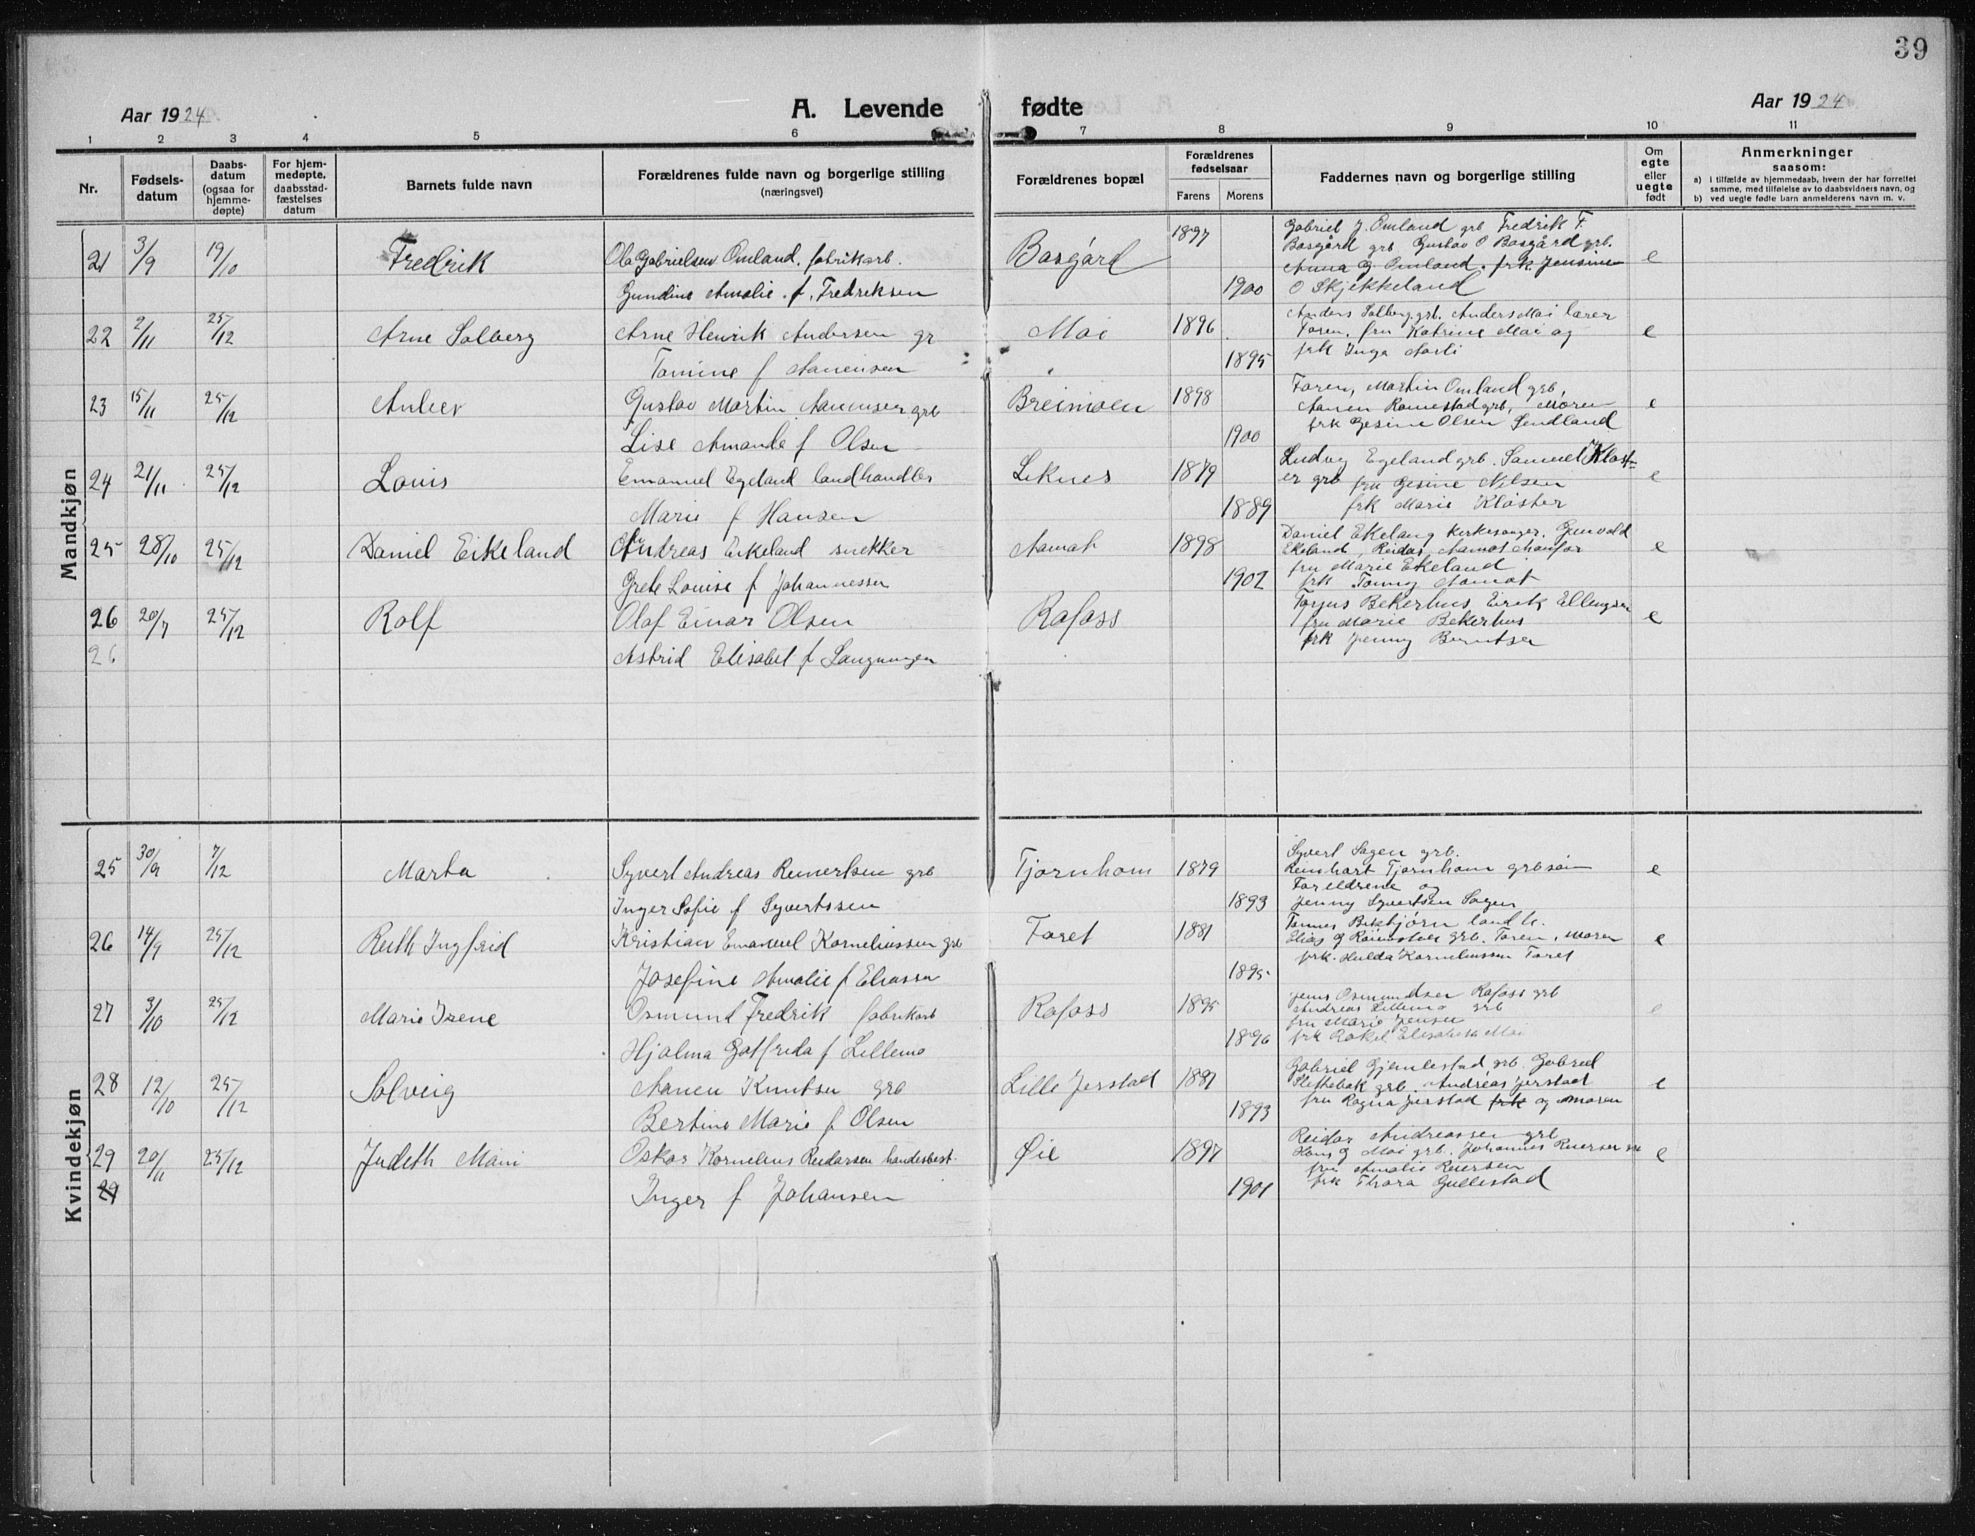 39
Aar 1924 A. Levende fødte Aar 1924
1 2 3 4 5 6 7 8 9 10 11
Nr. Fødselsdatum Daabsdatum (ogsaa for hjemmedøpte) For hjemmedøpte, daabsstadfæstelses datum Barnets fulde navn Forældrenes fulde navn og borgerlige stilling (næringsvei) Forældrenes bopæl Forældrenes fødselsaar Farens Morens Faddernes navn og borgerlige stilling Om egte eller uegte født Anmerkninger saasom:
a) i tilfælde av hjemmedaab, hvem der har forrettet samme, med tilføielse av to daabsvidners navn, og
b) ved uegte fødte barn anmelderens navn m. v.
Mandkjøn
21 3/9 19/10 Fredrik Ola Gabrielsen Omland, fabrikarb. Bosgård 1897 Gabriel J. Omland grb Fredrik F.
Bosgård grb Gustav O Bosgård grb. e
Gundine Amalie f. Fredriksen 1900 Anna G Omland. frk Jensine
O Skjekkeland
22 2/11 25/12 Arne Solberg Arne Henrik Andersen gr Moi 1896 Anders Solberg grb. Anders Moi lærer
Faren, fru Katrine Moi og e
Tomine f Aanensen 1895 frk Inga
23 15/11 25/12 Gustav Martin Aanensen grb Breimoen 1898 Faren, Martin Omland grb,
Aanen Romestad grb, Moren e
Lise Amanda f Olsen 1900 frk Gesine Olsen Sendland
24 21/11 25/12 Louis Emanuel Egeland landhandler Liknes 1879 Ludvig Egeland grb. Samuel Kløst=
er grb fru Gesine Nilsen e
Marie f Hansen 1889 frk Marie Kløster
25 28/10 25/12 Daniel Eikeland Andreas Eikeland snekker Aamot 1898 Daniel Ekeland kirkesanger. Gunvald
Ekeland, Reidar Aamot e
Grete Louise f Johannessen 1902 fru Marie Ekeland
frk Tonny Aamot
26 20/7 25/12 Rolf Olaf Einar Olsen Rafoss Bekerhus Eirik Ellingsen
fru Marie Bekerhus e
26 Astrid Elisabet f Langungen frk Jenny Berntsen
Kvindekjøn
25 30/9 7/12 Marta Syvert Andreas Reinertsen grb Tjørnhom 1879 Syvert Sagen grb.
Reinhart Tjørnhom grbsøn e
Foreldrene og
Inger Sofie f Syvertssen 1893 Jenny Syvertsen Sagen
26 14/9 25/12 Ruth Ingfrid Kristian Emanuel Korneliussen grb Faret 1881 Tønnes landh.
Elias grb. Faren, Moren e
Josefine Amalie f Eliassen 1895 frk. Hulda Korneliussen Faret
27 3/10 25/12 Marie Irene Osmund Fredrik fabrikarb Rafoss 1895 Jens Osmundsen Rafoss grb
Andreas Lillemo grb e
fru Marie Jensen
Hjalma Gotfreda f Lillemo 1896 frk Rakel Elisabeth Moi
28 12/10 25/12 Solveig Aanen Knutsen grb Lille Jerstad 1881 Gabriel Gjemlestad grb. Gabriel
Slettebak grb. Andreas Jerstad e
Bertine Marie f Olsen 1893 fru Ragna Jerstad frk og Moren
29 20/11 25/12 Judeth Oskar Kornelius Reidarsen handesbest. Øie 1897 Reidar Andreassen grb
Hans G Moi grb. Johannes Reiersen e
fru Amalie Reiersen
29 Inger f Johansen 1901 frk Thora Gullestad